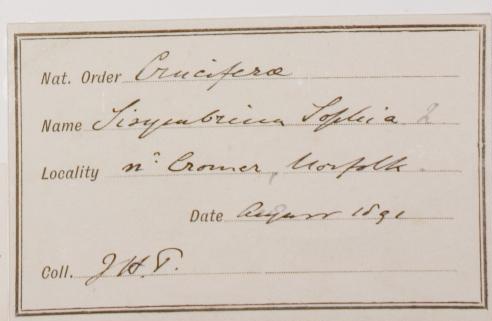 Nat. Order Cruciferæ
Name Sisymbrium Sophia L
Locality nr. Cromer, Norfolk.
Date August 1891
Coll. J.H.T.